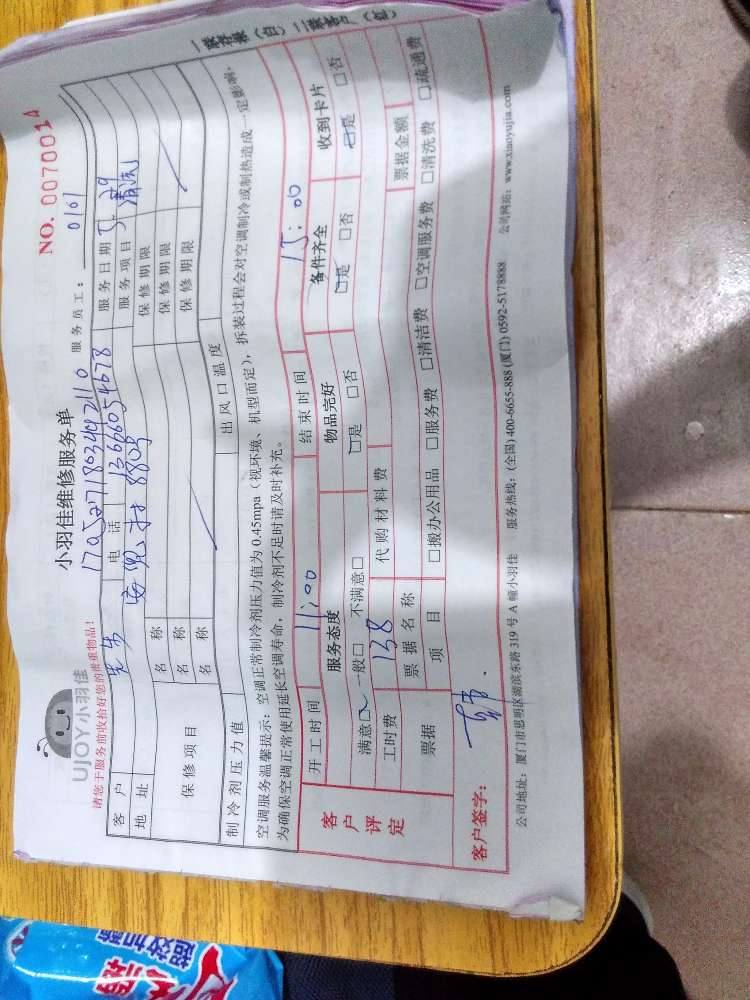 UJOY小羽佳
小羽佳维修服务单
NO. 0070014
请您于服务前收拾好您的贵重物品!
17052718034012110
服务员工: 0161
客户 电话 13666054678 服务日期 5.29
地址 8805 服务项目 清洗
保修项目
名称 保修期限
名称 保修期限
名称 保修期限
制冷剂压力值 出风口温度
空调服务温馨提示: 空调正常制冷剂压力值为 0.45mpa (视环境、机型而定), 拆装过程会对空调制冷或制热造成一定影响,
为确保空调正常使用延长空调寿命, 制冷剂不足时请及时补充。
客户评定
开工时间 11:00 结束时间 15:00
服务态度 物品完好 备件齐全 收到卡片
满意□ 一般□ 不满意□ □是 □否 □是 □否 □是 □否
工时费 138 代购材料费 票据金额
票据 票据名称
项目 □搬办公用品 □服务费 □清洁费 □空调服务费 □清洗费 □疏通费
客户签字:
公司地址: 厦门市思明区湖滨东路 319 号 A 幢小羽佳 服务热线: (全国) 400-6655-888 (厦门) 0592-5178888 公司网站: www.xiaoyujia.com